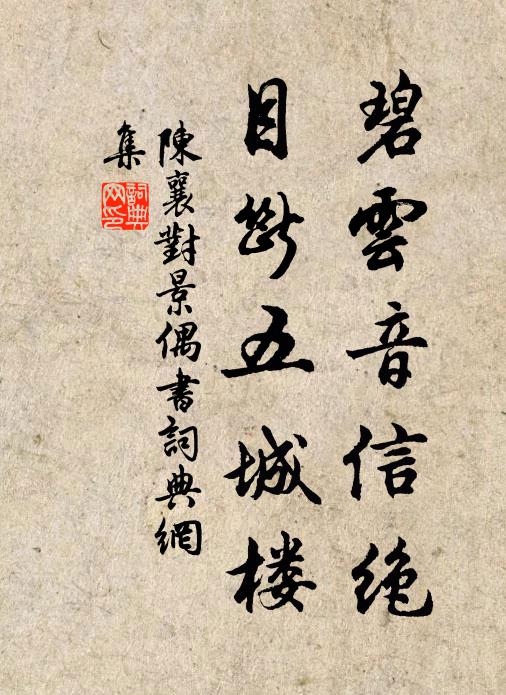 碧雲音信绝
目斷五城楼
陳襄對景偶書詞典網
集
詞典
网印